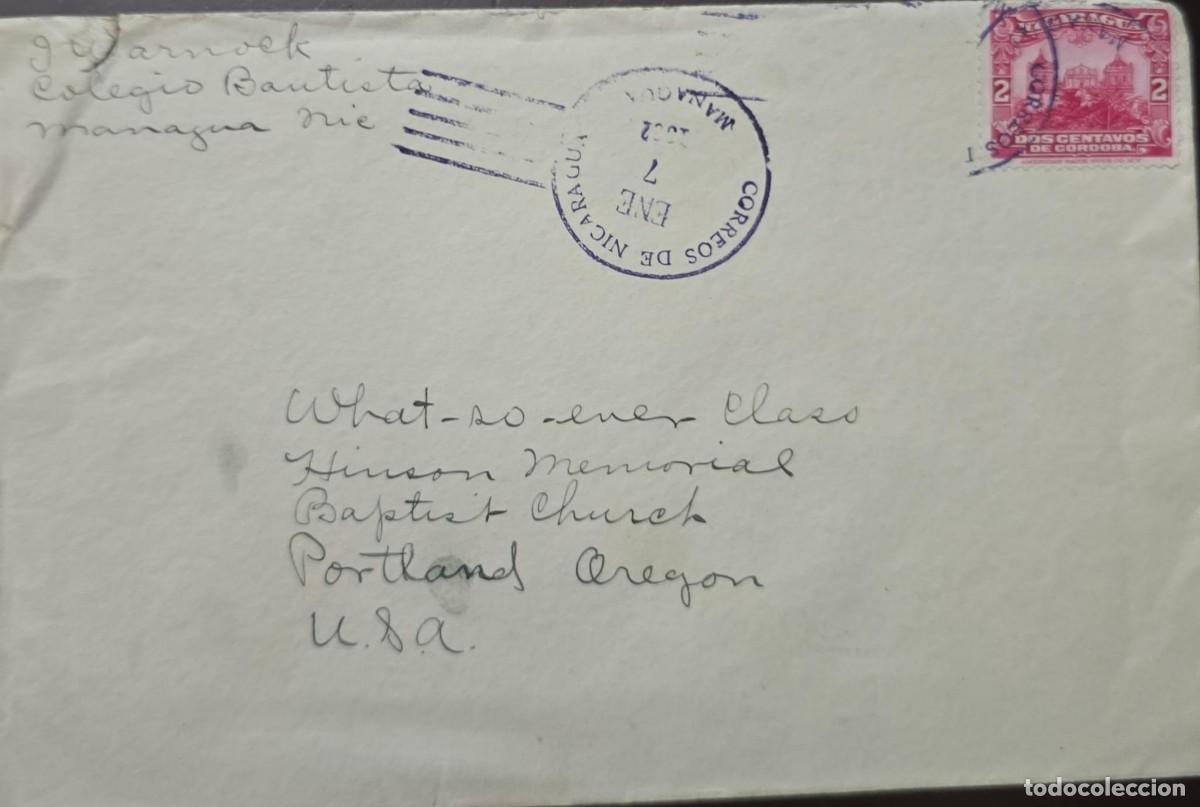 J Warnock
Colegio Bautista
Managua Nic
CORREOS DE NICARAGUA
MANAGUA
ENE
7
NICARAGUA
CORREOS
2 2
DOS CENTAVOS
DE CORDOBA.
What-so-ever Class
Hinson Memorial
Baptist Church
Portland Oregon
U.S.A.
todocoleccion